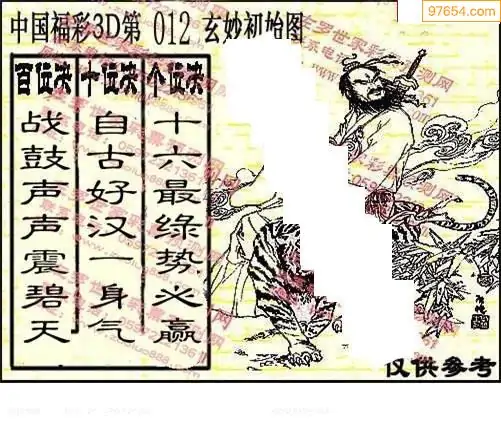 97654.com
中国福彩3D第 012 玄妙初始图
百位决 十位决 个位决
战鼓声声震碧天
自古好汉一身气
十六最绿势必赢
仅供参考